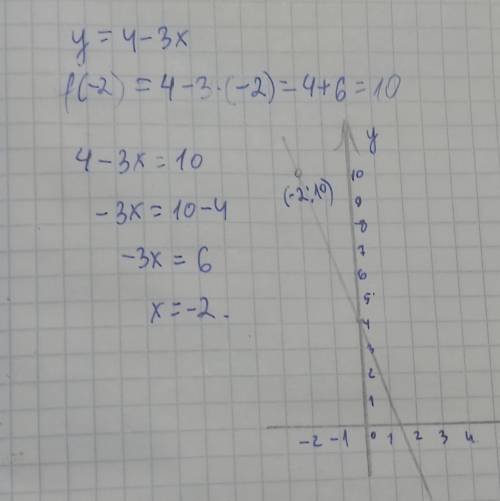 y = 4 - 3x
f(-2) = 4 - 3·(-2) = 4 + 6 = 10
4 - 3x = 10
-3x = 10 - 4
-3x = 6
x = -2.
y
10
(-2; 10)
9
8
7
6
5
4
3
2
1
-2 -1 0 1 2 3 4